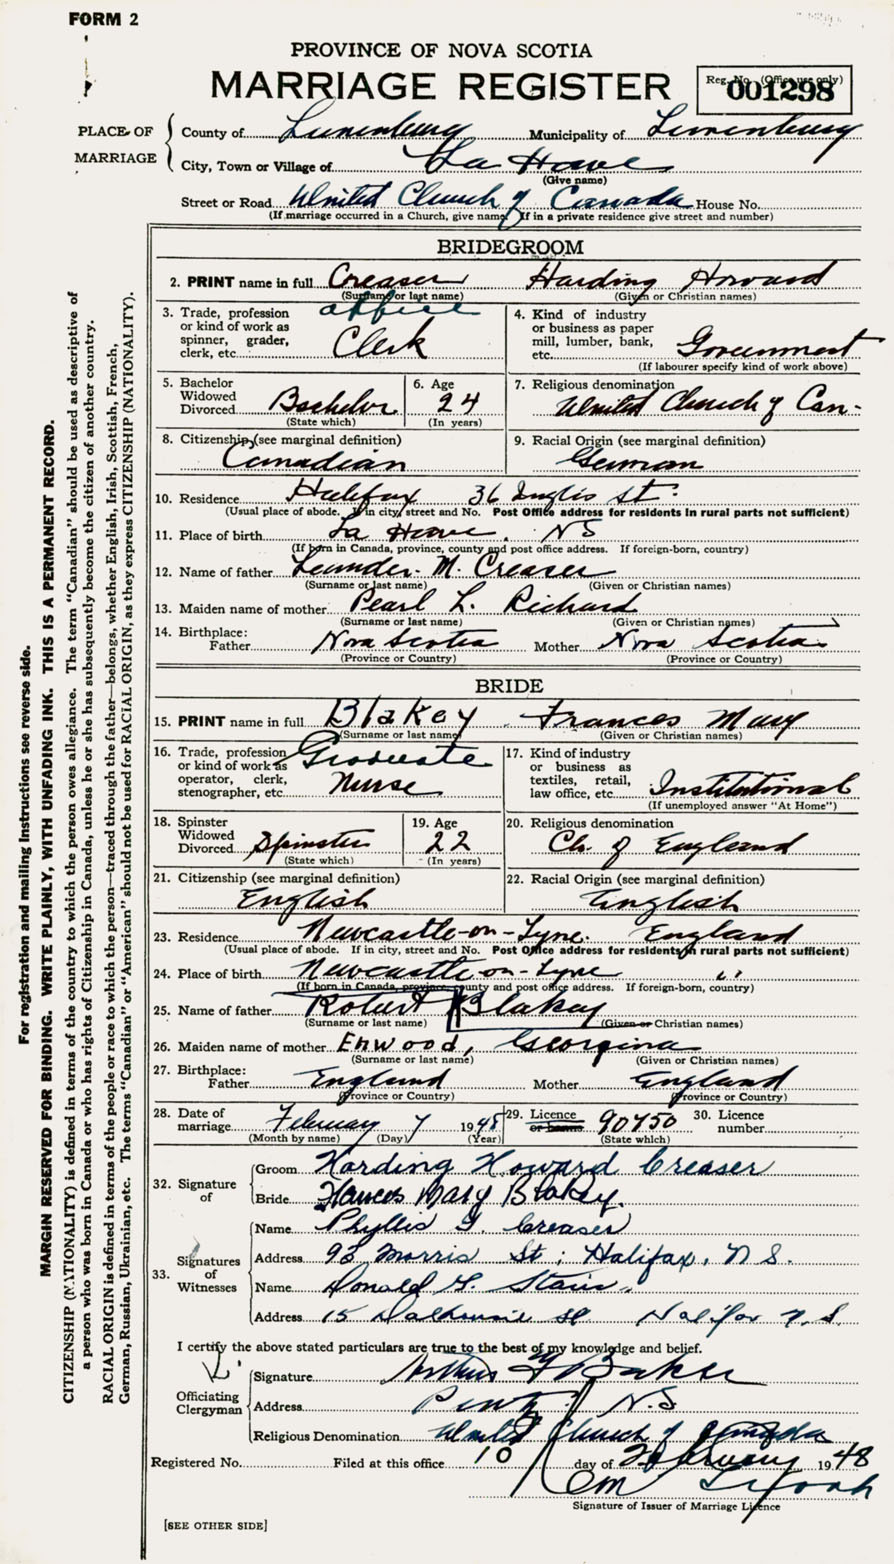 FORM 2
PROVINCE OF NOVA SCOTIA
MARRIAGE REGISTER
Reg. No. (Office use only)
001298
PLACE OF MARRIAGE
County of Lunenburg Municipality of Lunenburg
City, Town or Village of La Have
(Give name)
Street or Road United Church of Canada House No.
(If marriage occurred in a Church, give name. If in a private residence give street and number)
BRIDEGROOM
2. PRINT name in full Creaser Harding Howard
(Surname or last name) (Given or Christian names)
3. Trade, profession or kind of work as spinner, grader, clerk, etc. office Clerk
4. Kind of industry or business as paper mill, lumber, bank, etc. Government
(If labourer specify kind of work above)
5. Bachelor Widowed Divorced Bachelor
(State which)
6. Age 24
(In years)
7. Religious denomination United Church of Can-
8. Citizenship (see marginal definition) Canadian
9. Racial Origin (see marginal definition) German
10. Residence Halifax 36 Inglis St.
(Usual place of abode. If in city, street and No. Post Office address for residents in rural parts not sufficient)
11. Place of birth La Have, NS
(If born in Canada, province, county and post office address. If foreign-born, country)
12. Name of father Leander M. Creaser
(Surname or last name) (Given or Christian names)
13. Maiden name of mother Pearl L. Richard
(Surname or last name) (Given or Christian names)
14. Birthplace: Father Nova Scotia Mother Nova Scotia
(Province or Country) (Province or Country)
BRIDE
15. PRINT name in full Blakey, Frances Mary
(Surname or last name) (Given or Christian names)
16. Trade, profession or kind of work as operator, clerk, stenographer, etc. Graduate Nurse
17. Kind of industry or business as textiles, retail, law office, etc. Institutional
(If unemployed answer "At Home")
18. Spinster Widowed Divorced Spinster
(State which)
19. Age 22
(In years)
20. Religious denomination Ch. of England
21. Citizenship (see marginal definition) English
22. Racial Origin (see marginal definition) English
23. Residence Newcastle-on-Tyne. England
(Usual place of abode. If in city, street and No. Post Office address for residents in rural parts not sufficient)
24. Place of birth Newcastle-on-Tyne "
(If born in Canada, province, county and post office address. If foreign-born, country)
25. Name of father Robert Blakey
(Surname or last name) (Given or Christian names)
26. Maiden name of mother Enwood, Georgina
(Surname or last name) (Given or Christian names)
27. Birthplace: Father England Mother England
(Province or Country) (Province or Country)
28. Date of marriage February 7 1948
(Month by name) (Day) (Year)
29. Licence or banns 90750
(State which)
30. Licence number
32. Signature of
Groom Harding Howard Creaser
Bride Frances Mary Blakey.
33. Signatures of Witnesses
Name Phyllis G. Creaser
Address 93 Morris St; Halifax, N S.
Name Donald G. Stairs
Address 15 Dalhousie St Halifax N.S.
I certify the above stated particulars are true to the best of my knowledge and belief.
Officiating Clergyman
Signature Arthur F Baker
Address N.S
Religious Denomination United Church of Canada
Registered No. Filed at this office 10 day of February 1948
Signature of Issuer of Marriage Licence
[SEE OTHER SIDE]
For registration and mailing instructions see reverse side.
MARGIN RESERVED FOR BINDING. WRITE PLAINLY, WITH UNFADING INK. THIS IS A PERMANENT RECORD.
CITIZENSHIP (NATIONALITY) is defined in terms of the country to which the person owes allegiance. The term "Canadian" should be used as descriptive of
a person who was born in Canada or who has rights of Citizenship in Canada, unless he or she has subsequently become the citizen of another country.
RACIAL ORIGIN is defined in terms of the people or race to which the person—traced through the father—belongs, whether English, Irish, Scottish, French,
German, Russian, Ukrainian, etc. The terms "Canadian" or "American" should not be used for RACIAL ORIGIN, as they express CITIZENSHIP (NATIONALITY).